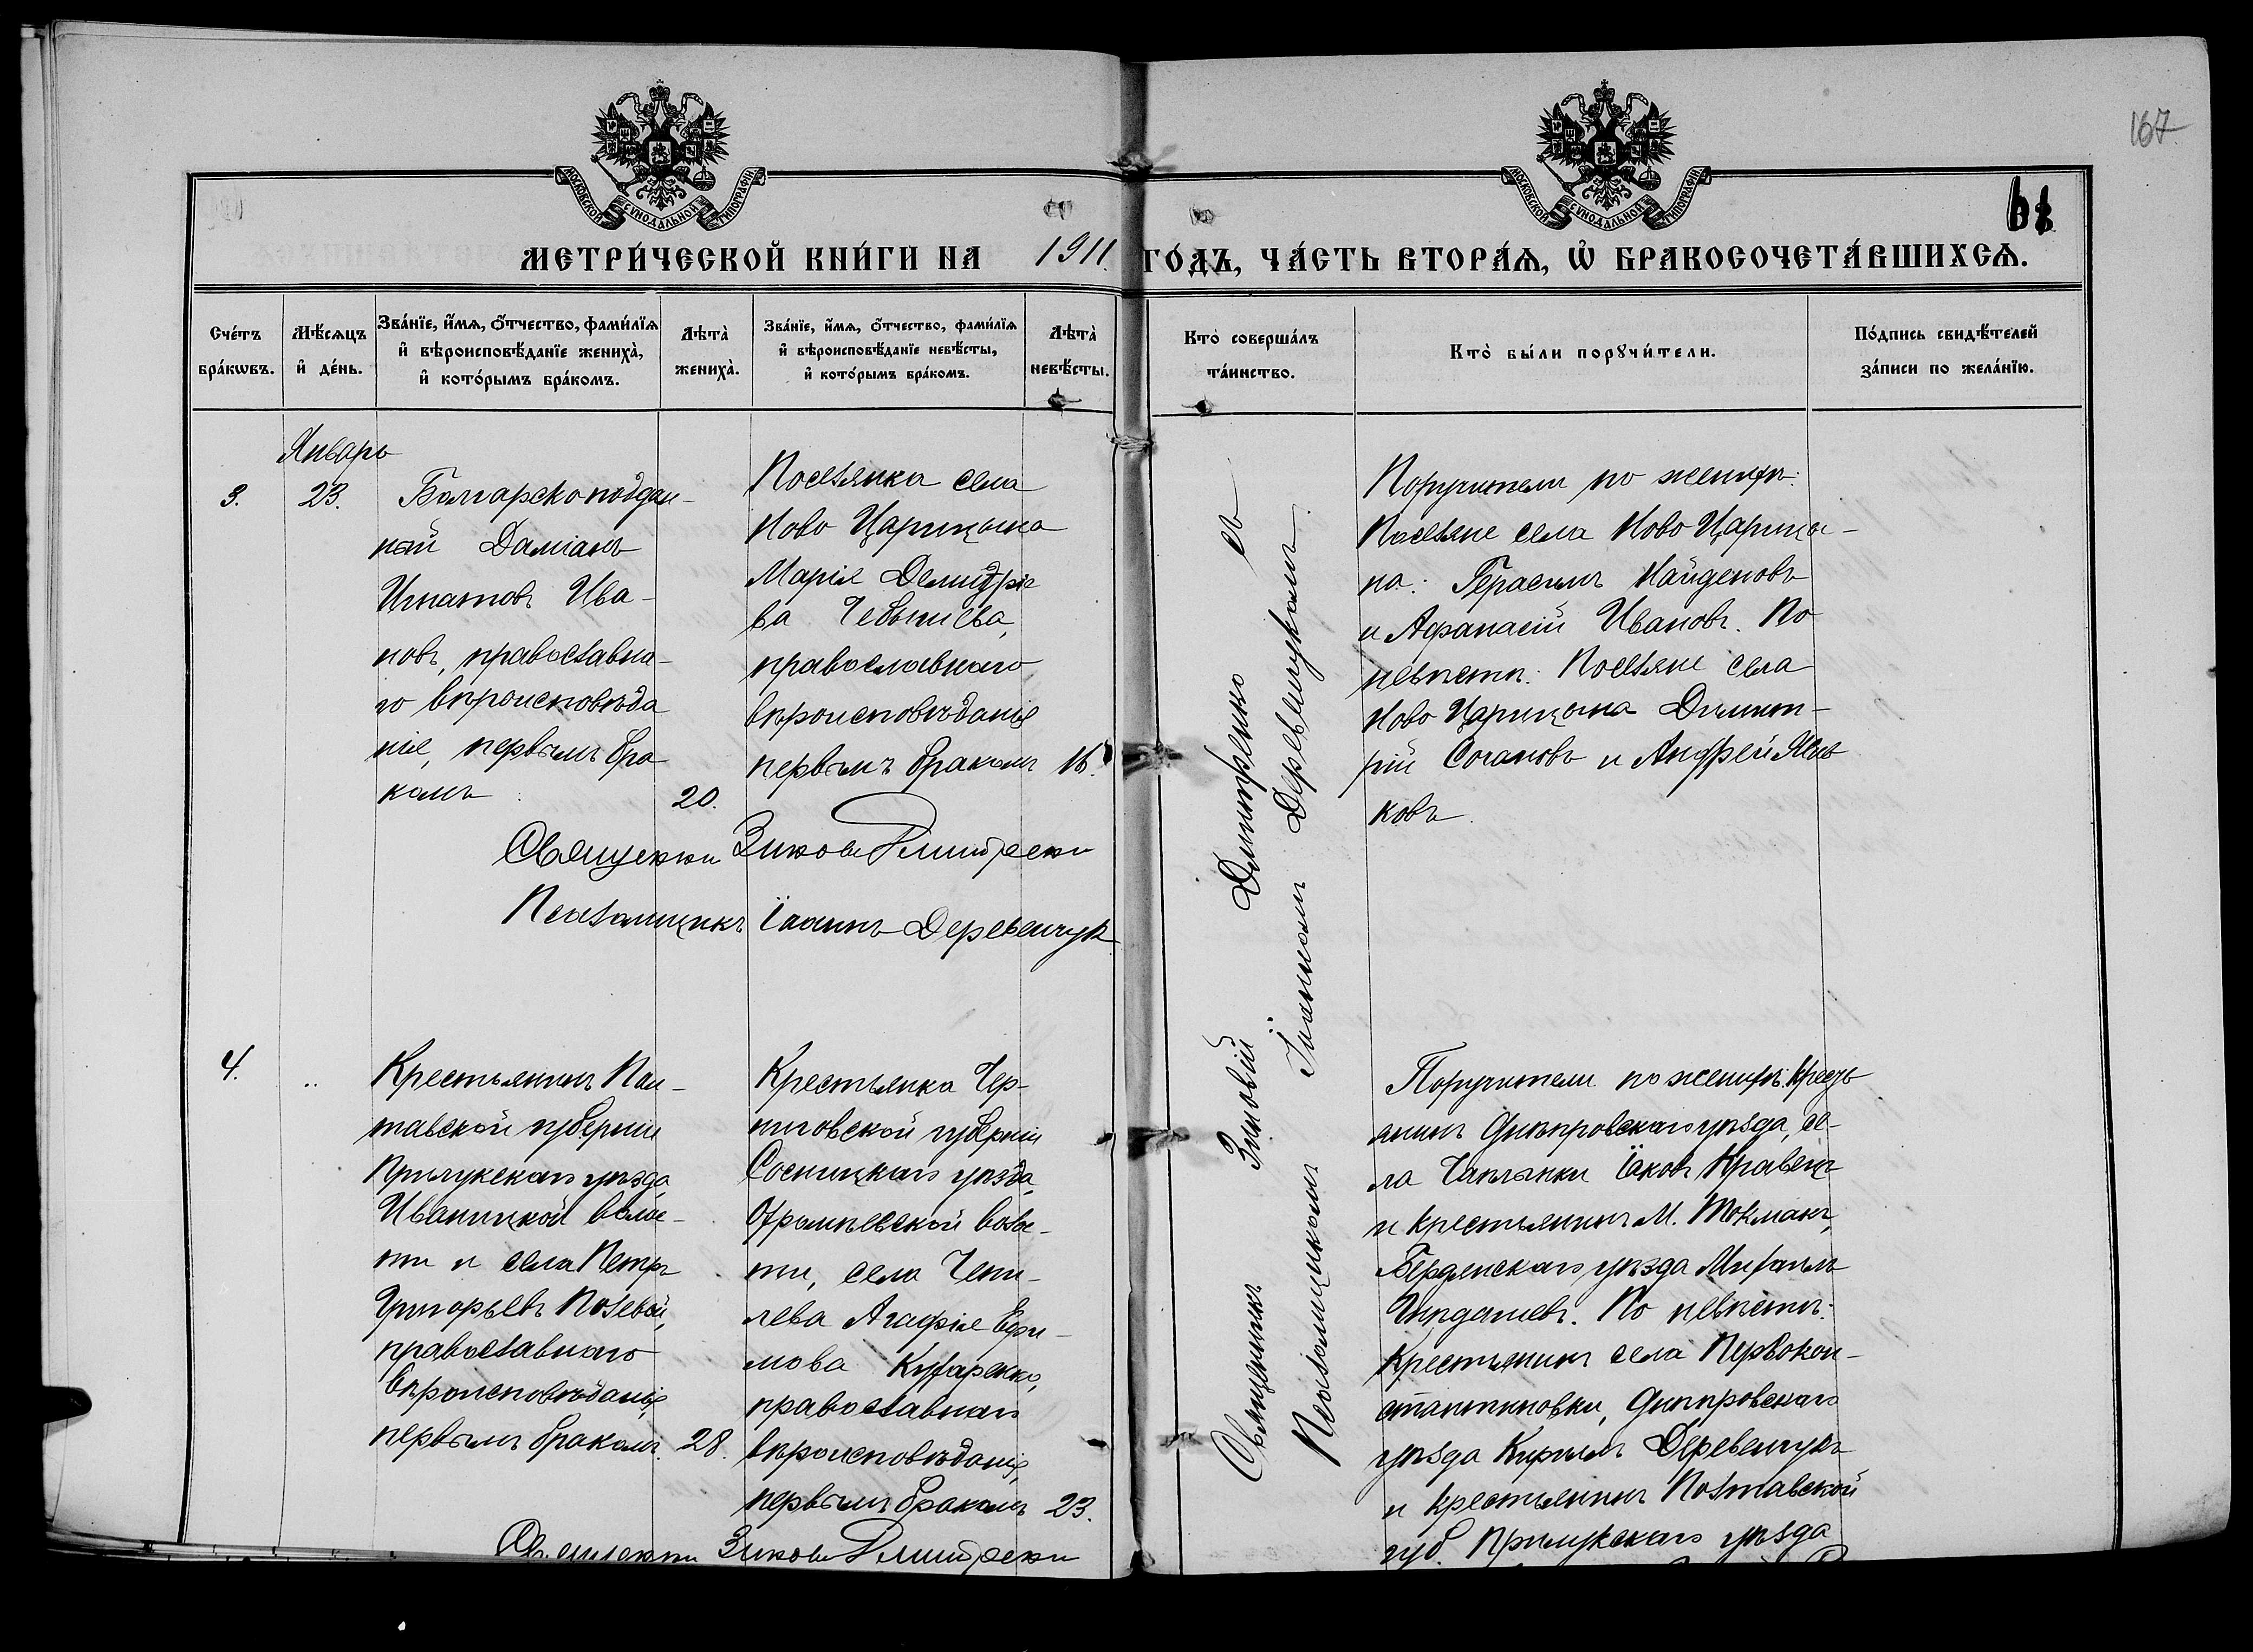 167
МОСКОВСКОЙ СѴНОДАЛЬНОЙ ТИПОГРАФІИ
МОСКОВСКОЙ СѴНОДАЛЬНОЙ ТИПОГРАФІИ
МЕТРИ́ЧЕСКОЙ КНИ́ГИ НА 1911. ГО́ДЪ, ЧА́СТЬ ВТОРА́Ѧ, Ѡ҆ БРАКОСОЧЕТА́ВШИХСѦ.
Сче́тъ
бра́кѡвъ.
Мѣ́сѧцъ
и҆ де́нь.
Зва́нїе, и҆́мѧ, ѻ҆́тчество, фами́лїѧ
и҆ вѣроисповѣ́данїе жениха̀,
и҆ кото́рымъ бра́комъ.
Лѣта̀
жениха̀.
Зва́нїе, и҆́мѧ, ѻ҆́тчество, фами́лїѧ
и҆ вѣроисповѣ́данїе невѣ́сты,
и҆ кото́рымъ бра́комъ.
Лѣта̀
невѣ́сты.
Кто̀ соверша́лъ
та́инство.
Кто̀ бы́ли порꙋчи́тели.
По́дпись свидѣ́телей
за́писи по жела́нїю.
3.
Январь
23.
Болгарскоподдан-
ный Даміанъ
Игнатовъ Ива-
новъ, православна-
го вѣроисповѣда
нія, первымъ бра
комъ
20.
Поселянка села
Ново Царицына
Марія Демитріе
ва
православнаго
вѣроисповѣданія
первымъ бракомъ
16.
Священникъ Зиновій Димитренко
Псаломщикъ Іоаннъ Деревенчук
Священникъ Зиновій Димитренко съ
Псаломщикомъ Іоанномъ Деревенчукомъ.
Поручители по женихѣ:
Поселяне села Ново Царицы-
на: Герасимъ Найденовъ
и Афанасій Ивановъ. По
невѣстѣ: Поселяне села
Ново Царицына Димит-
рій и Андрей
ковъ.
4.
"
Крестьянинъ Пол-
тавской губерніи
Прилукскаго уѣзда,
Иваницкой волос-
ти и села Петръ
Григорьевъ Полевой,
православнаго
вѣроисповѣданія,
первымъ бракомъ.
28.
Крестьянка Чер-
ниговской губерніи
Сосницкаго уѣзда,
волос-
ти, села
лева Агафія Ефи-
мова Кухаренко,
православнаго
вѣроисповѣданія,
первымъ бракомъ
23.
Священникъ Зиновій Димитренко
Поручители по женихѣ: Кресть
янинъ Днѣпровскаго уѣзда, се-
ла Чаплинки Іаковъ Кравецъ
и крестьянинъ М. Токмакъ,
Бердянскаго уѣзда Михаилъ
По невѣстѣ:
крестьянинъ села Первокон-
стантиновки, Днѣпровскаго
уѣзда Кириллъ Деревенчукъ
и крестьянинъ Полтавской
губ. Прилукскаго уѣзда